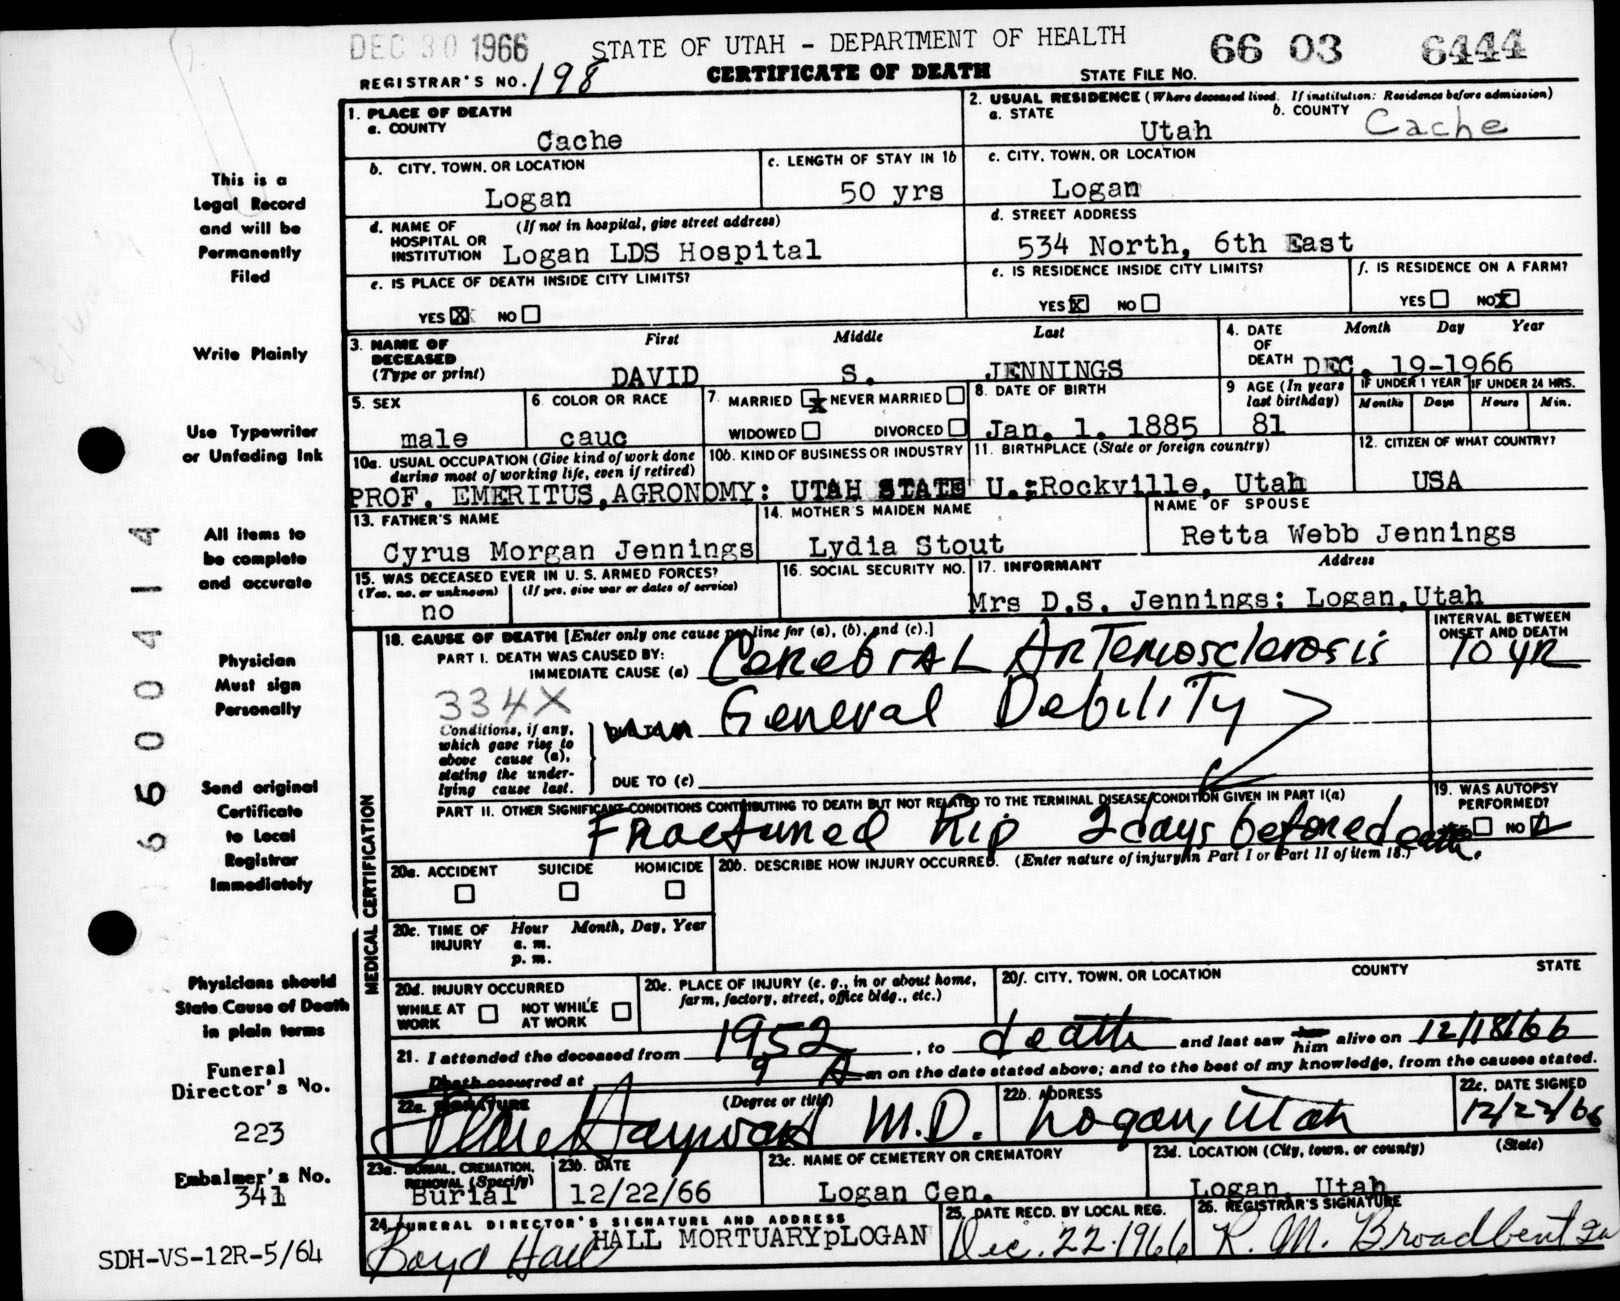 DEC 30 1966 STATE OF UTAH - DEPARTMENT OF HEALTH 66 03 6444
REGISTRAR'S NO. 198 CERTIFICATE OF DEATH STATE FILE NO.
1. PLACE OF DEATH
a. COUNTY
Cache
2. USUAL RESIDENCE (Where deceased lived. If institution: Residence before admission)
a. STATE b. COUNTY
Utah Cache
b. CITY, TOWN, OR LOCATION
Logan
c. LENGTH OF STAY IN 1b
50 yrs
c. CITY, TOWN, OR LOCATION
Logan
d. NAME OF (If not in hospital, give street address)
HOSPITAL OR
INSTITUTION Logan LDS Hospital
d. STREET ADDRESS
534 North, 6th East
e. IS PLACE OF DEATH INSIDE CITY LIMITS?
YES X NO
e. IS RESIDENCE INSIDE CITY LIMITS?
YES X NO
f. IS RESIDENCE ON A FARM?
YES NO X
3. NAME OF
DECEASED
(Type or print)
First Middle Last
DAVID S. JENNINGS
4. DATE
OF
DEATH
Month Day Year
DEC. 19-1966
5. SEX
male
6. COLOR OR RACE
cauc
7. MARRIED X NEVER MARRIED
WIDOWED DIVORCED
8. DATE OF BIRTH
Jan. 1. 1885
9 AGE (In years
last birthday)
81
IF UNDER 1 YEAR
Months Days
IF UNDER 24 HRS.
Hours Min.
10a. USUAL OCCUPATION (Give kind of work done
during most of working life, even if retired)
10b. KIND OF BUSINESS OR INDUSTRY
11. BIRTHPLACE (State or foreign country)
12. CITIZEN OF WHAT COUNTRY?
PROF. EMERITUS,AGRONOMY: UTAH STATE U.:Rockville, Utah USA
13. FATHER'S NAME
Cyrus Morgan Jennings
14. MOTHER'S MAIDEN NAME
Lydia Stout
NAME OF SPOUSE
Retta Webb Jennings
15. WAS DECEASED EVER IN U. S. ARMED FORCES?
(Yes, no, or unknown) (If yes, give war or dates of service)
no
16. SOCIAL SECURITY NO.
17. INFORMANT Address
Mrs D.S. Jennings: Logan,Utah
18. CAUSE OF DEATH [Enter only one cause per line for (a), (b), and (c).]
INTERVAL BETWEEN
ONSET AND DEATH
PART I. DEATH WAS CAUSED BY:
IMMEDIATE CAUSE (a) Cerebral Arteriosclerosis 10 yr
334X
Conditions, if any,
which gave rise to
above cause (a),
stating the under-
lying cause last.
General Debility
DUE TO (c)
PART II. OTHER SIGNIFICANT CONDITIONS CONTRIBUTING TO DEATH BUT NOT RELATED TO THE TERMINAL DISEASE CONDITION GIVEN IN PART I(a)
Fractured Hip 2 days before death.
19. WAS AUTOPSY
PERFORMED?
NO
20a. ACCIDENT SUICIDE HOMICIDE
20b. DESCRIBE HOW INJURY OCCURRED. (Enter nature of injury in Part I or Part II of item 18.)
20c. TIME OF
INJURY
Hour Month, Day, Year
a. m.
p. m.
20d. INJURY OCCURRED
WHILE AT
WORK
NOT WHILE
AT WORK
20e. PLACE OF INJURY (e. g., in or about home,
farm, factory, street, office bldg., etc.)
20f. CITY, TOWN, OR LOCATION COUNTY STATE
21. I attended the deceased from 1952, to death and last saw him alive on 12/18/66
Death occurred at 9 A m on the date stated above; and to the best of my knowledge, from the causes stated.
22a. SIGNATURE (Degree or title)
Hayward M.D.
22b. ADDRESS
Logan, Utah
22c. DATE SIGNED
12/22/66
23a. BURIAL, CREMATION,
REMOVAL (Specify)
Burial
23b. DATE
12/22/66
23c. NAME OF CEMETERY OR CREMATORY
Logan Cem.
23d. LOCATION (City, town, or county) (State)
Logan, Utah
24. FUNERAL DIRECTOR'S SIGNATURE AND ADDRESS
Boyd Hall HALL MORTUARYpLOGAN
25. DATE RECD. BY LOCAL REG.
Dec. 22-1966
26. REGISTRAR'S SIGNATURE
R. M. Broadbent
This is a
Legal Record
and will be
Permanently
Filed
Write Plainly
Use Typewriter
or Unfading Ink
All items to
be complete
and accurate
Physician
Must sign
Personally
Send original
Certificate
to Local
Registrar
Immediately
Physicians should
State Cause of Death
in plain terms
Funeral
Director's No.
223
Embalmer's No.
341
SDH-VS-12R-5/64
MEDICAL CERTIFICATION